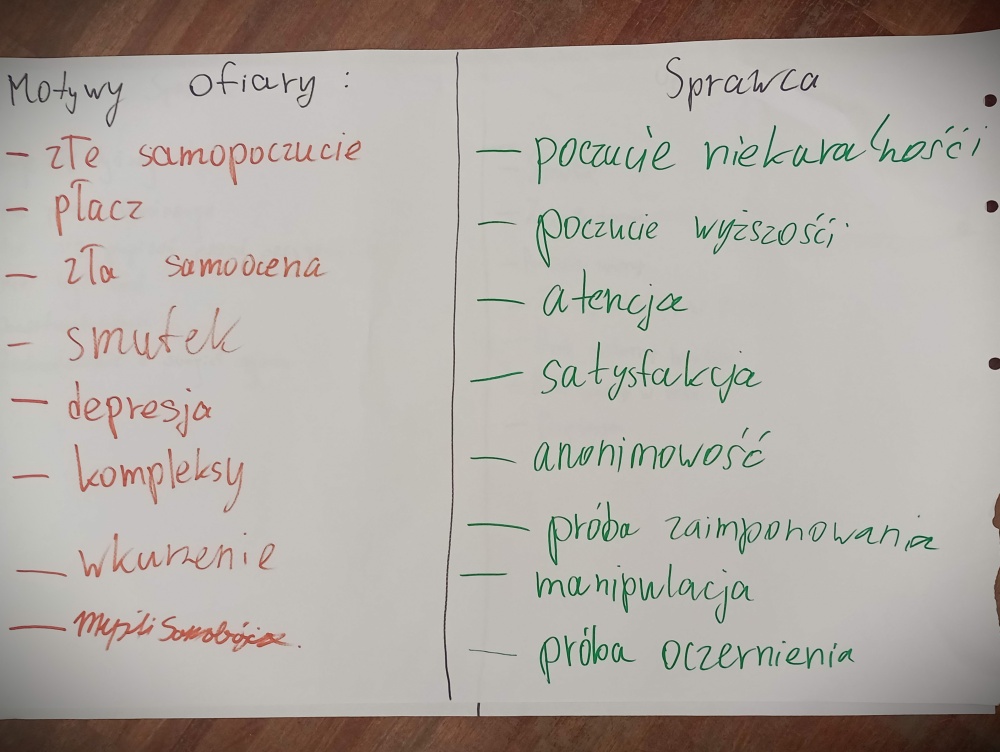 Motywy Ofiary :
- złe samopoczucie
- płacz
- zła samoocena
- smutek
- depresja
- kompleksy
- wkurzenie
- Myśli
Sprawca
- poczucie niekaralnośći
- poczucie wyższośći
- atencja
- satysfakcja
- anonimowość
- próba zaimponowania
- manipulacja
- próba oczernienia